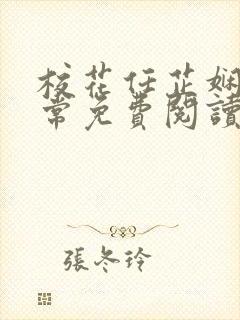 校花任芷嫻
常免費閱讀
張冬玲